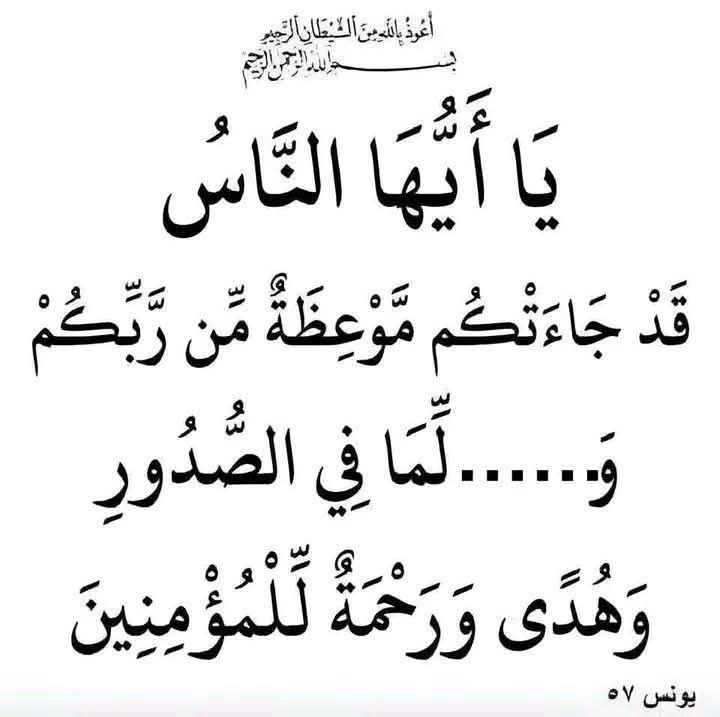 أعوذ بالله من الشيطان الرجيم
بسم الله الرحمن الرحيم
يَا أَيُّهَا النَّاسُ
قَدْ جَاءَتْكُم مَّوْعِظَةٌ مِّن رَّبِّكُمْ
وَ......لِّمَا فِي الصُّدُورِ
وَهُدًى وَرَحْمَةٌ لِّلْمُؤْمِنِينَ
يونس ٥٧